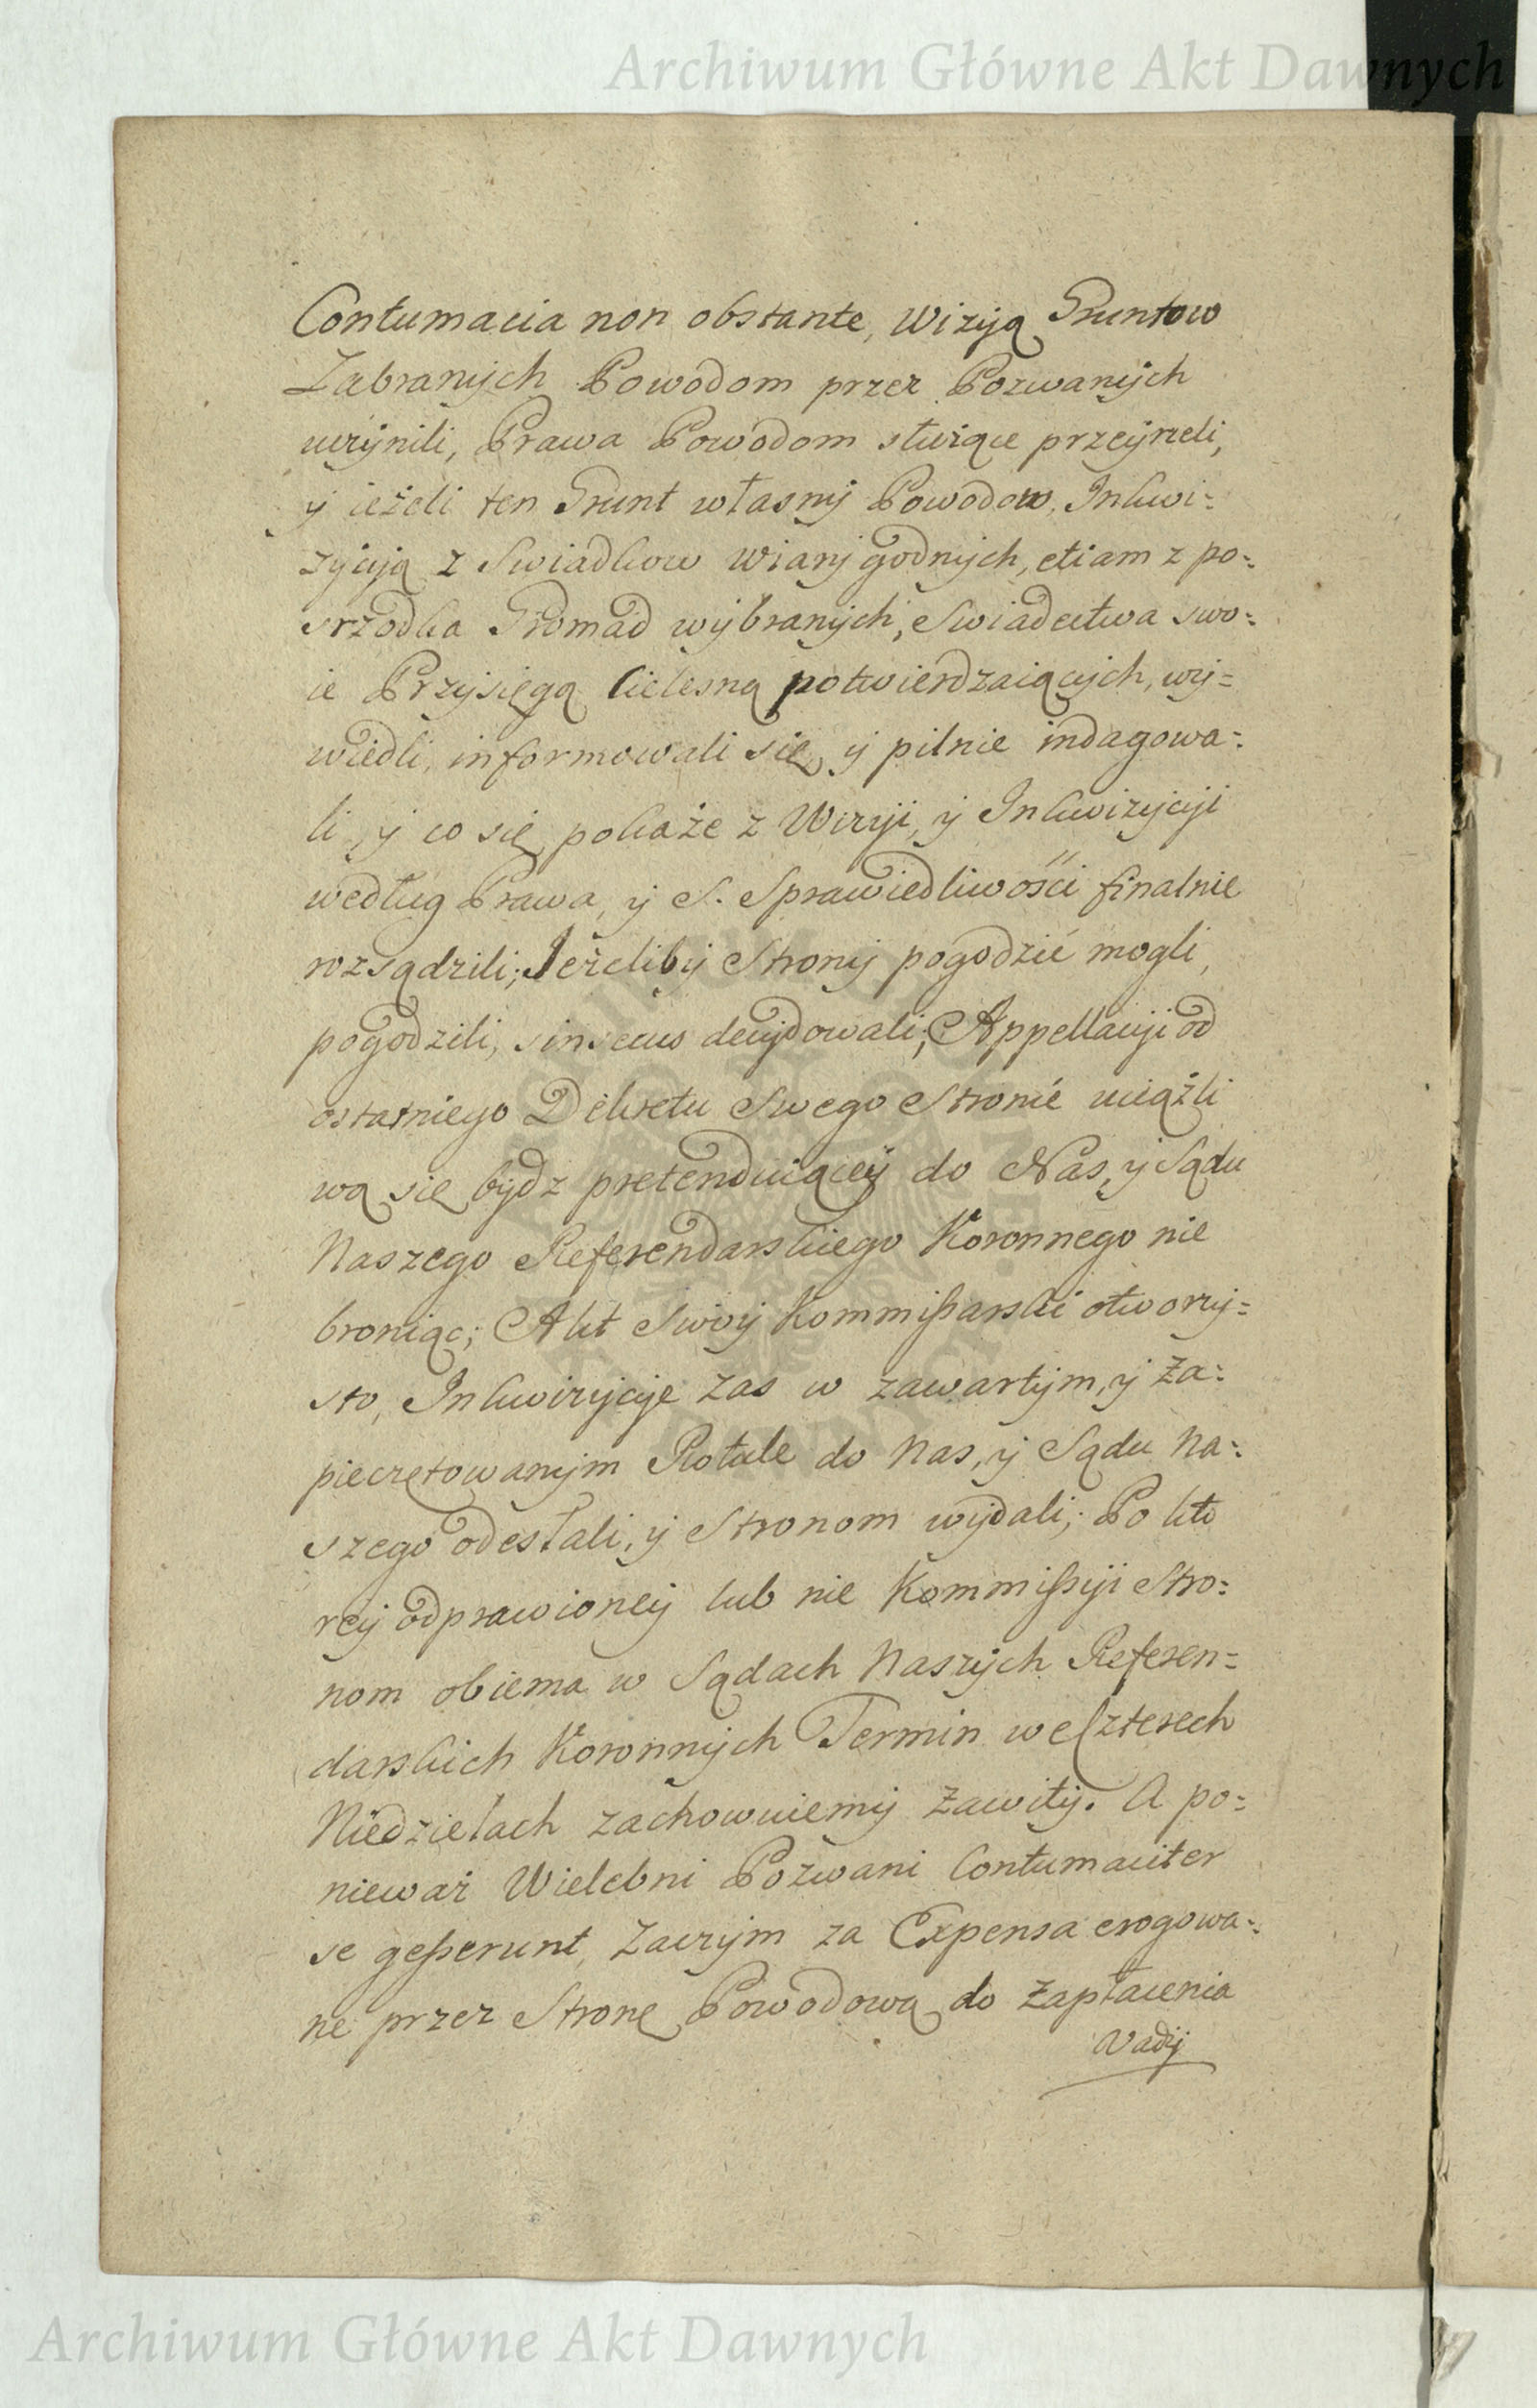 Archiwum Główne Akt Dawnych
Contumacia non obstante, Wizyą Gruntow
Zabranych Powodom przez Pozwanych
uczynili, Prawa Powodom służące przeyrzeli,
y ieżeli ten Grunt własny Powodow, Inkwi=
zycyą z Swiadkow wiary godnych, etiam z po=
srzodka Gromad wybranych, Swiadectwa swo=
ie Przysięgą Cielesną potwierdzaiących, wy=
wiedli, informowali się, y pilnie indagowa=
li, y co się pokaże z Wizyi, y Inkwizycyi
według Prawa, y S. Sprawiedliwości finalnie
rozsądzili; Jeżeliby Strony pogodzić mogli,
pogodzili, sin secus decydowali; Appellacyi od
ostatniego Dekretu Swego Stronie uciążli
wą się bydz pretenduiącey do Nas, y Sądu
Naszego Referendarskiego Koronnego nie
broniąc; Akt Swoy Kommißarski otworzy=
sto, Inkwizycye zas w zawartym, y za=
pieczętowanym Rotule do Nas, y Sądu Na=
szego odesłali, y Stronom wydali; Po kto
rey odprawioney lub nie Kommißyi Stro=
nom obiema w Sądach Naszych Referen=
darskich Koronnych Termin we Czterech
Niedzielach zachowuiemy zawity. A po=
nieważ Wielebni Pozwani Contumaciter
se geßerunt, Zaczym za Expensa erogowa=
ne przez Stronę Powodową do zapłacenia
Vadij
Archiwum Główne Akt Dawnych